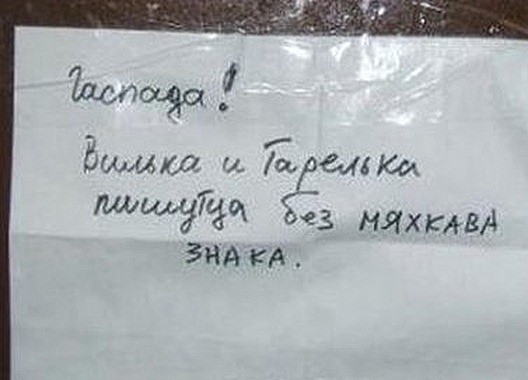 Гаспада!
Вилька и Тарелька
пишутца без мяхкава
знака.